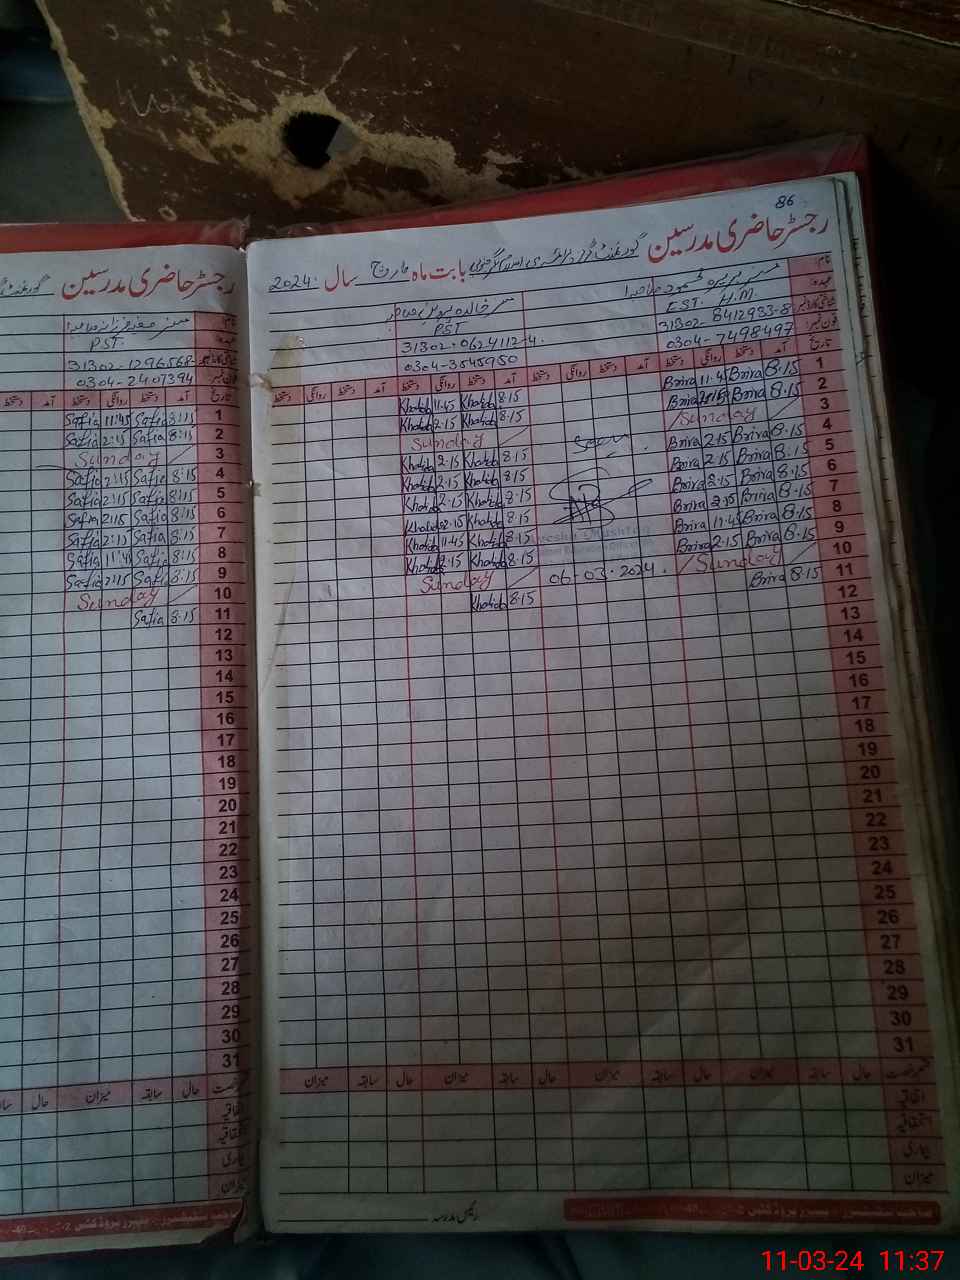 86
رجسٹر حاضری مدرسین گورنمنٹ گرلز بابت ماہ مارچ سال 2024
نام:
عہدہ: EST. H.M. PST
شناختی کارڈ نمبر 31302-8412933-8 31302-0624112-4
فون نمبر: 0304-7498497 0304-3545950
تاریخ آمد دستخط روانگی دستخط آمد دستخط روانگی دستخط آمد دستخط روانگی دستخط آمد دستخط روانگی دستخط
1 8.15 Brira 11.45 Brira 8.15 Khalida 11.45 Khalida
2 8.15 Brira 2.15 Brira 8.15 Khalida 2.15 Khalida
3 Sunday Sunday
4 8.15 Brira 2.15 Brira 8.15 Khalida 2.15 Khalida
5 8.15 Brira 2.15 Brira 8.15 Khalida 2.15 Khalida
6 8.15 Brira 2.15 Brira 8.15 Khalida 2.15 Khalida
7 8.15 Brira 2.15 Brira 8.15 Khalida 2.15 Khalida
8 8.15 Brira 11.45 Brira 8.15 Khalida 11.45 Khalida
9 8.15 Brira 2.15 Brira 8.15 Khalida 2.15 Khalida
10 Sunday Sunday
06-03-2024.
11 8.15 Brira 8.15 Khalida
12
13
14
15
16
17
18
19
20
21
22
23
24
25
26
27
28
29
30
31
حال سابقہ میزان حال سابقہ میزان حال سابقہ میزان حال سابقہ میزان
اتفاقیہ
استحقاقیہ
بیماری
میزان
رئیس مدرسہ
رجسٹر حاضری مدرسین
نام:
عہدہ: PST.
31302-1296568-
فون نمبر 0304-2407394
تاریخ آمد دستخط روانگی دستخط آمد دستخط
1 8:15 Safia 11:45 Safia
2 8:15 Safia 2:15 Safia
3 Sunday
4 8:15 Safia 2:15 Safia
5 8:15 Safia 2:15 Safia
6 8:15 Safia 2:15 Safia
7 8:15 Safia 2:15 Safia
8 8:15 Safia 11:45 Safia
9 8:15 Safia 2:15 Safia
10 Sunday
11 8.15 Safia
12
13
14
15
16
17
18
19
20
21
22
23
24
25
26
27
28
29
30
31
حال سابقہ میزان حال
اتفاقیہ
استحقاقیہ
بیماری
میزان
11-03-24 11:37